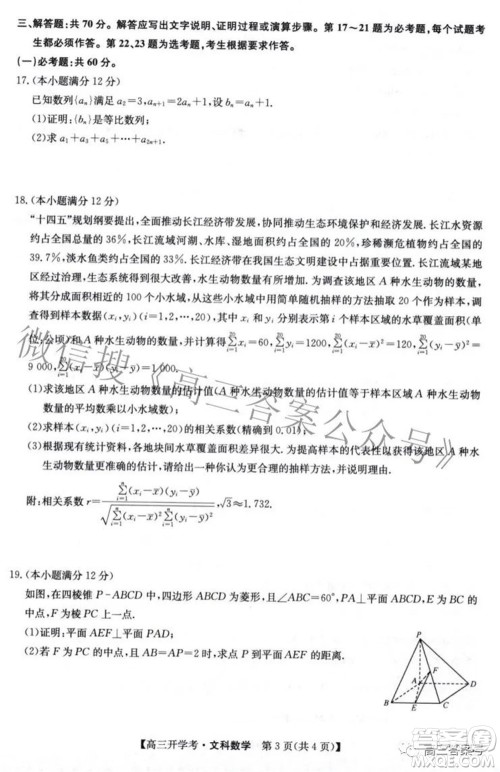 三、解答题:共70分。解答应写出文字说明、证明过程或演算步骤。第17~21题为必考题,每个试题考
生都必须作答。第22、23题为选考题,考生根据要求作答。
(一)必考题:共60分。
17.(本小题满分12分)
已知数列{aₙ}满足a₂=3,aₙ₊₁=2aₙ+1,设bₙ=aₙ+1.
(1)证明:{bₙ}是等比数列;
(2)求a₁+a₃+a₅+⋯+a₂ₙ₊₁.
18.(本小题满分12分)
“十四五”规划纲要提出,全面推动长江经济带发展,协同推动生态环境保护和经济发展.长江水资源
约占全国总量的36%,长江流域河湖、水库、湿地面积约占全国的20%,珍稀濒危植物约占全国的
39.7%,淡水鱼类约占全国的33%.长江经济带在我国生态文明建设中占据重要位置.长江流域某地
区经过治理,生态系统得到很大改善,水生动物数量有所增加.为调查该地区A种水生动物的数量,
将其分成面积相近的100个小水域,从这些水域中用简单随机抽样的方法抽取20个作为样本,调
查得到样本数据(xᵢ,yᵢ)(i=1,2,…,20),其中xᵢ和yᵢ分别表示第i个样本区域的水草覆盖面积(单
位:公顷)和A种水生动物的数量,并计算得∑xᵢ=60,∑yᵢ=1200,∑(xᵢ-x̄)²=120,∑(yᵢ-ȳ)²=
9 000,∑(xᵢ-x̄)(yᵢ-ȳ)=1 000.
(1)求该地区A种水生动物数量的估计值(A种水生动物数量的估计值等于样本区域A种水生动物
数量的平均数乘以小水域数);
(2)求样本(xᵢ,yᵢ)(i=1,2,…,20)的相关系数(精确到0.01);
(3)根据现有统计资料,各地块间水草覆盖面积差异很大.为提高样本的代表性以获得该地区A种水
生动物数量更准确的估计,请给出一种你认为更合理的抽样方法,并说明理由.
附:相关系数r=∑ⁿᵢ₌₁(xᵢ-x̄)(yᵢ-ȳ)/√(∑ⁿᵢ₌₁(xᵢ-x̄)²∑ⁿᵢ₌₁(yᵢ-ȳ)²),√3≈1.732.
19.(本小题满分12分)
如图,在四棱锥P-ABCD中,四边形ABCD为菱形,且∠ABC=60°,PA⊥平面ABCD,E为BC的
中点,F为棱PC上一点.
(1)证明:平面AEF⊥平面PAD;
(2)若F为PC的中点,且AB=AP=2时,求点P到平面AEF的距离.
P
F
A
D
B
E
C
【高三开学考·文科数学 第3页(共4页)】
微信搜《高三答案公众号》
高三答案号